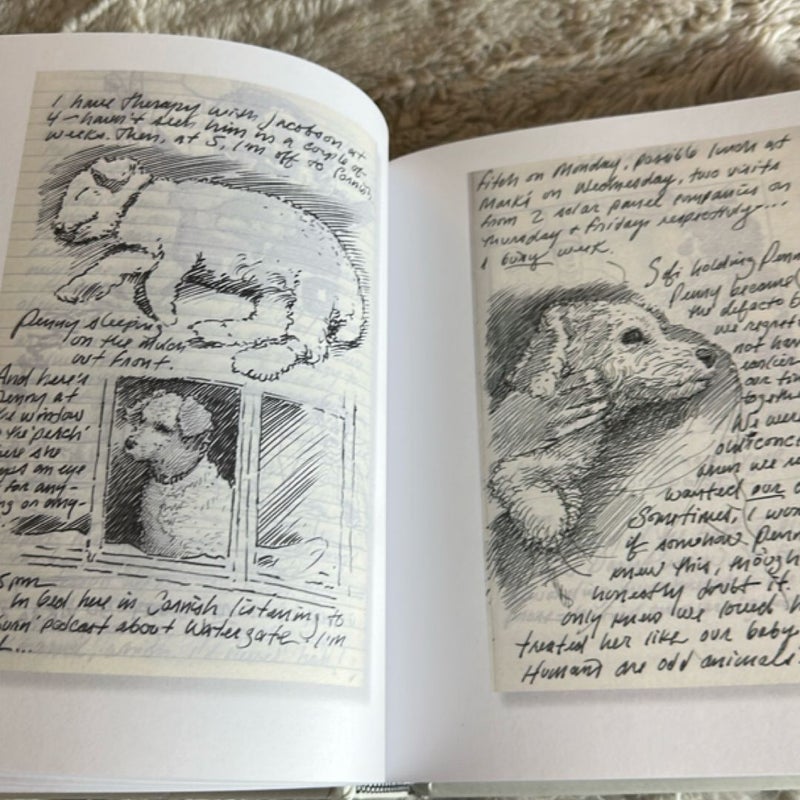 I have therapy with Jacobson at
4 – haven't seen him in a couple of
weeks. Then, at 5, I'm off to Cornish,
Penny sleeping
on the
out front.
And here's
Penny at
the window
the 'perch'
where she
an eye
for any-
on any-
5pm
In bed here in Cornish listening to
podcast about Watergate. I'm
Fitch on Monday, possible lunch at
Mark's on Wednesday, two visits
from 2 solar panel companies on
Thursday & Friday respectively...
A busy week.
Sofi holding Penny
Penny became
the defacto b
we regret
not hav
earlier
our tim
together
We were
our conc
when we re
wanted our
Sometimes, I won
if somehow Penn
knew this, though
honestly doubt it.
only knew we loved h
treated her like our baby
Humans are odd animals